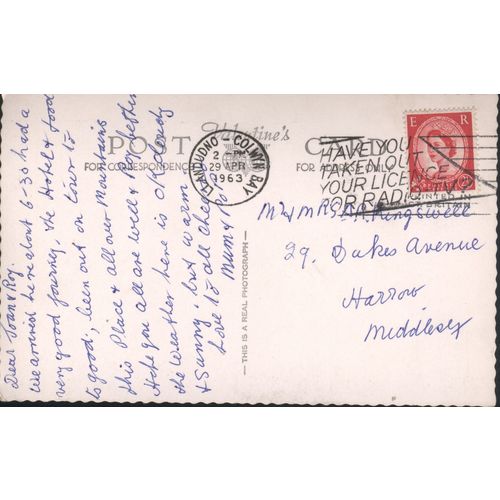 POST CARD
Valentine's
FOR CORRESPONDENCE
FOR ADDRESS ONLY
LLANDUDNO - COLWYN BAY
2 PM
29 APR
1963
HAVE YOU
TAKEN OUT
YOUR LICENCE
FOR RADIO TV
E R
PRINTED IN
— THIS IS A REAL PHOTOGRAPH —
Dear Joan & Roy.
We arrived here about 6-30 had a
very good journey, the Hotel & food
is good, been out on tour to
this Place & all over Mountains
Hope you all are well &
the Weather here is
& Sunny but warm
Love to all
Mum &
Mr & Mrs R Kingswell
29. Dukes Avenue
Harrow
Middlesex